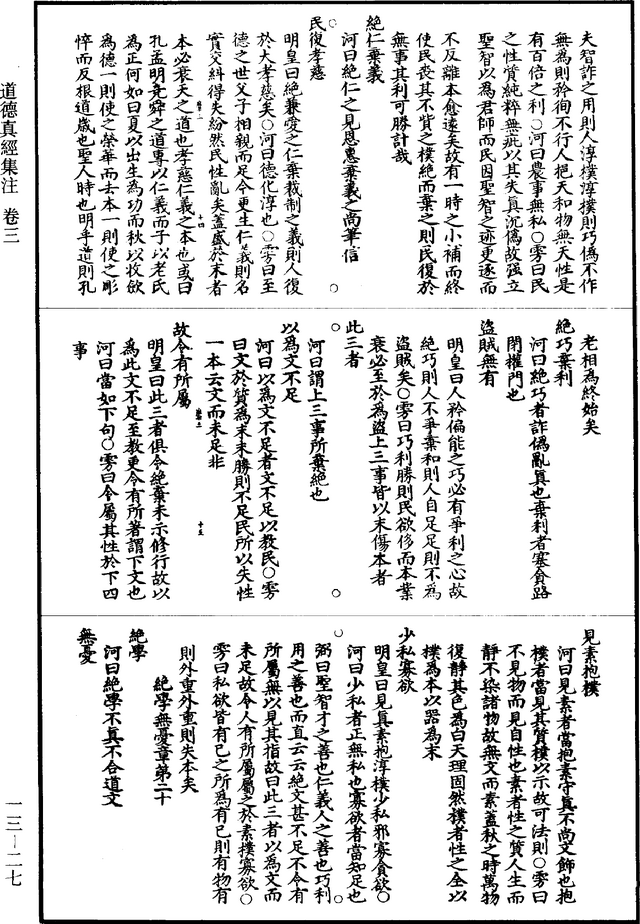 夫智詐之用則人淳樸淳樸則巧偽不作
無為則矜徇不行人抱天和物無天性是
有百倍之利○河曰農事無私○雱曰民
之性質純粹無疵以其失真沉偽故强立
聖智以為君師而民因聖智之迹更逐而
不反離本愈遠矣故有一時之小補而終
使民喪其不貲之樸絶而棄之則民復於
無事其利可勝計哉
絶仁棄義
河曰絶仁之見恩惠棄義之尚華信
民復孝慈
明皇曰絶兼愛之仁棄裁制之義則人復
於大孝慈矣○河曰德化淳也○雱曰至
德之世父子相親而足今更生仁義則名
實交糾得失紛然民性亂矣蓋盛於末者
本必衰天之道也孝慈仁義之本也或曰
孔孟明堯舜之道專以仁義而子以老氏
為正何如曰夏以出生為功而秋以收斂
為德一則使之榮華而去本一則使之彫
悴而反根道歲也聖人時也明乎道則孔
老相為終始矣
絶巧棄利
河曰絶巧者詐偽亂真也棄利者塞貪路
閉權門也
盜賊無有
明皇曰人矜偏能之巧必有爭利之心故
絶巧則人不爭棄和則人自足足則不為
盜賊矣○雱曰巧利勝則民欲侈而本業
衰必至於為盜上三事皆以末傷本者
此三者
河曰謂上三事所棄絶也
以為文不足
河曰以為文不足者文不足以教民○雱
曰文於質為末末勝則不足民所以失性
一本云文而未足非
故令有所屬
明皇曰此三者俱令絶棄未示修行故以
為此文不足至教更令有所著謂下文也
河曰當如下句○雱曰令屬其性於下四
事
見素抱樸
河曰見素者當抱素守真不尚文飾也抱
樸者當見其質樸以示故可法則○雱曰
不見物而見自性也素者性之質人生而
靜不染諸物故無文而素蓋秋之時萬物
復靜其色為白天理固然樸者性之全以
樸為本以器為末
少私寡欲
明皇曰見真素抱淳樸少私邪寡貪欲○
河曰少私者正無私也寡欲者當知足也
弼曰聖智才之善也仁義人之善也巧利
用之善也而直云云絶文甚不足不令有
所屬無以見其指故曰此三者以為文而
未足故令人有所屬屬之於素樸寡欲○
雱曰私欲皆有已之所為有已則有物有
則外重外重則失本矣
絶學無憂章第二十
絶學
河曰絶學不真不合道文
無憂
道德真經集注 卷三
一三-二七